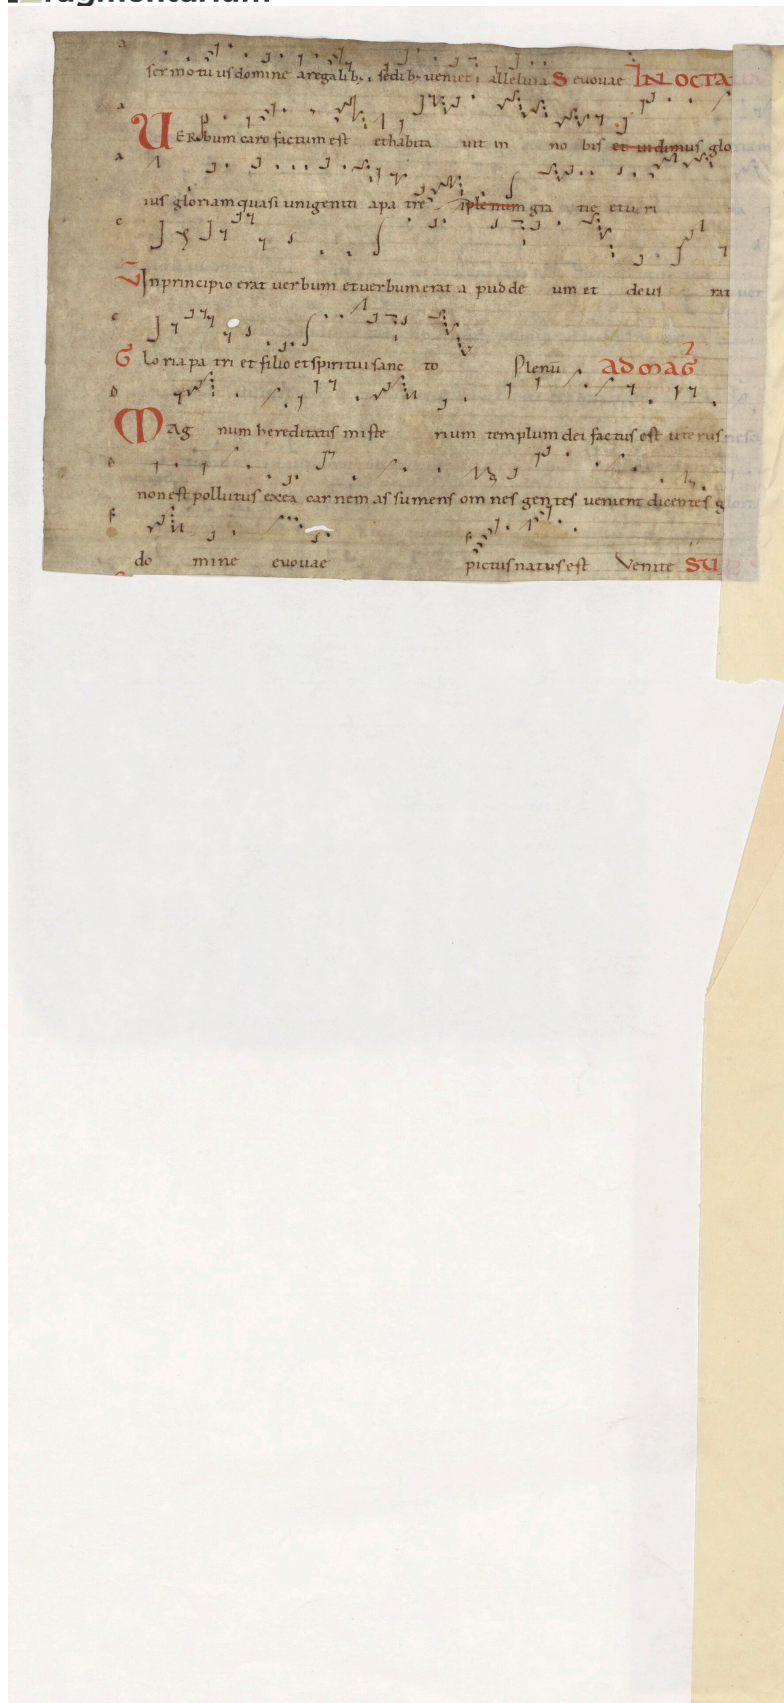 sermo tuus domine a regalib; sedib; veniet i alleluia S evovae IN OCTA
UERbum caro factum est et habita uit in no bis et uidimus glo
ius gloriam quasi unigeniti a pa tre plenum gra tie et ueri
V In principio erat uerbum et uerbum erat a pud de um et deus rat
G lo ria pa tri et filio et spiritui sanc to Plenū AD MAG
MAg num hereditatis miste rium templum dei factus est uterus
non est pollutus ex ea carnem as sumens om nes gentes venient dicentes g
do mine evovae pictus natus est Venite SU